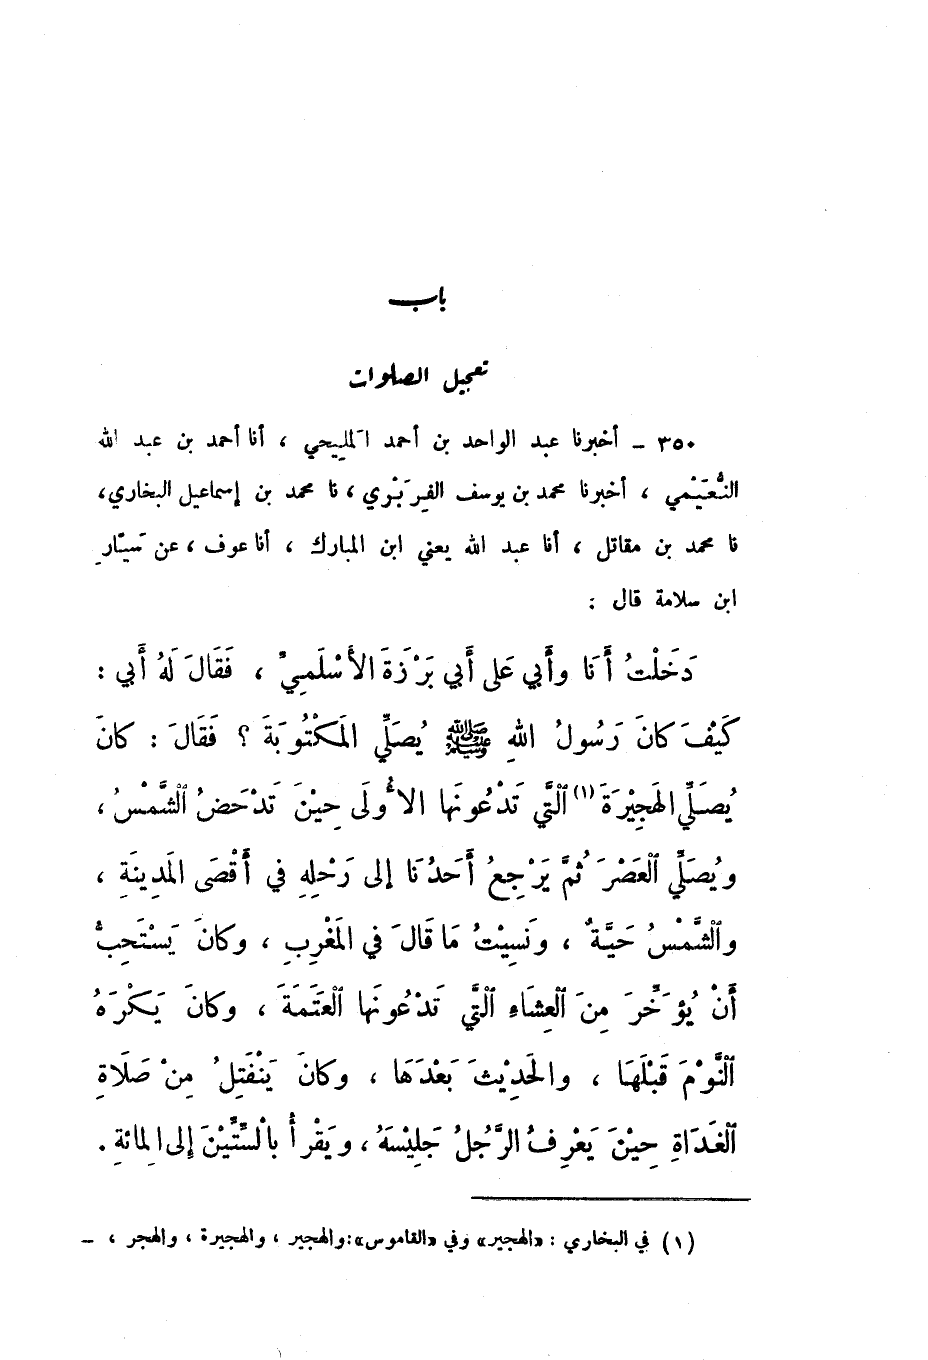 باب
تعجيل الصلوات
٣٥٠ ـ أخبرنا عبد الواحد بن أحمد المليحي ، أنا أحمد بن عبد الله
النُّعَيْمي ، أخبرنا محمد بن يوسف الفِرَبْري ، نا محمد بن إسماعيل البخاري ،
نا محمد بن مقاتل ، أنا عبد الله يعني ابن المبارك ، أنا عوف ، عن سَيّار
ابن سلامة قال :
دَخَلْتُ أَنَا وأَبي عَلى أَبي بَرْزَةَ الأَسْلَمِيِّ ، فَقَالَ لَهُ أَبي :
كَيْفَ كانَ رَسُولُ اللهِ ﷺ يُصَلِّي المَكْتُوبَةَ ؟ فَقَالَ : كانَ
يُصَلِّي الهَجِيْرَةَ (١) ٱلَّتي تَدْعُونَها الأُولَى حِيْنَ تَدْحَضُ ٱلشَّمْسُ ،
ويُصَلِّي ٱلعَصْرَ ثُمَّ يَرْجِعُ أَحَدُنَا إلى رَحْلِهِ في أَقْصَى المَدِينَةِ ،
وٱلشَّمْسُ حَيَّةٌ ، ونَسِيْتُ مَا قَالَ في المَغْرِبِ ، وكانَ يَسْتَحِبُّ
أَنْ يُؤَخِّرَ مِنَ ٱلعِشَاءِ ٱلَّتي تَدْعُونَها ٱلعَتَمَةَ ، وكانَ يَكْرَهُ
ٱلنَّوْمَ قَبْلَهَا ، والحَدِيْثَ بَعْدَهَا ، وكانَ يَنْفَتِلُ مِنْ صَلَاةِ
ٱلغَدَاةِ حِيْنَ يَعْرِفُ الرَّجُلُ جَلِيْسَهُ ، ويَقْرأُ بالْسِّتِّيْنَ إلى المائةِ .
(١) في البخاري : «الهجير» وفي «القاموس»: والهجير ، والهجيرة ، والهجر ، ـ